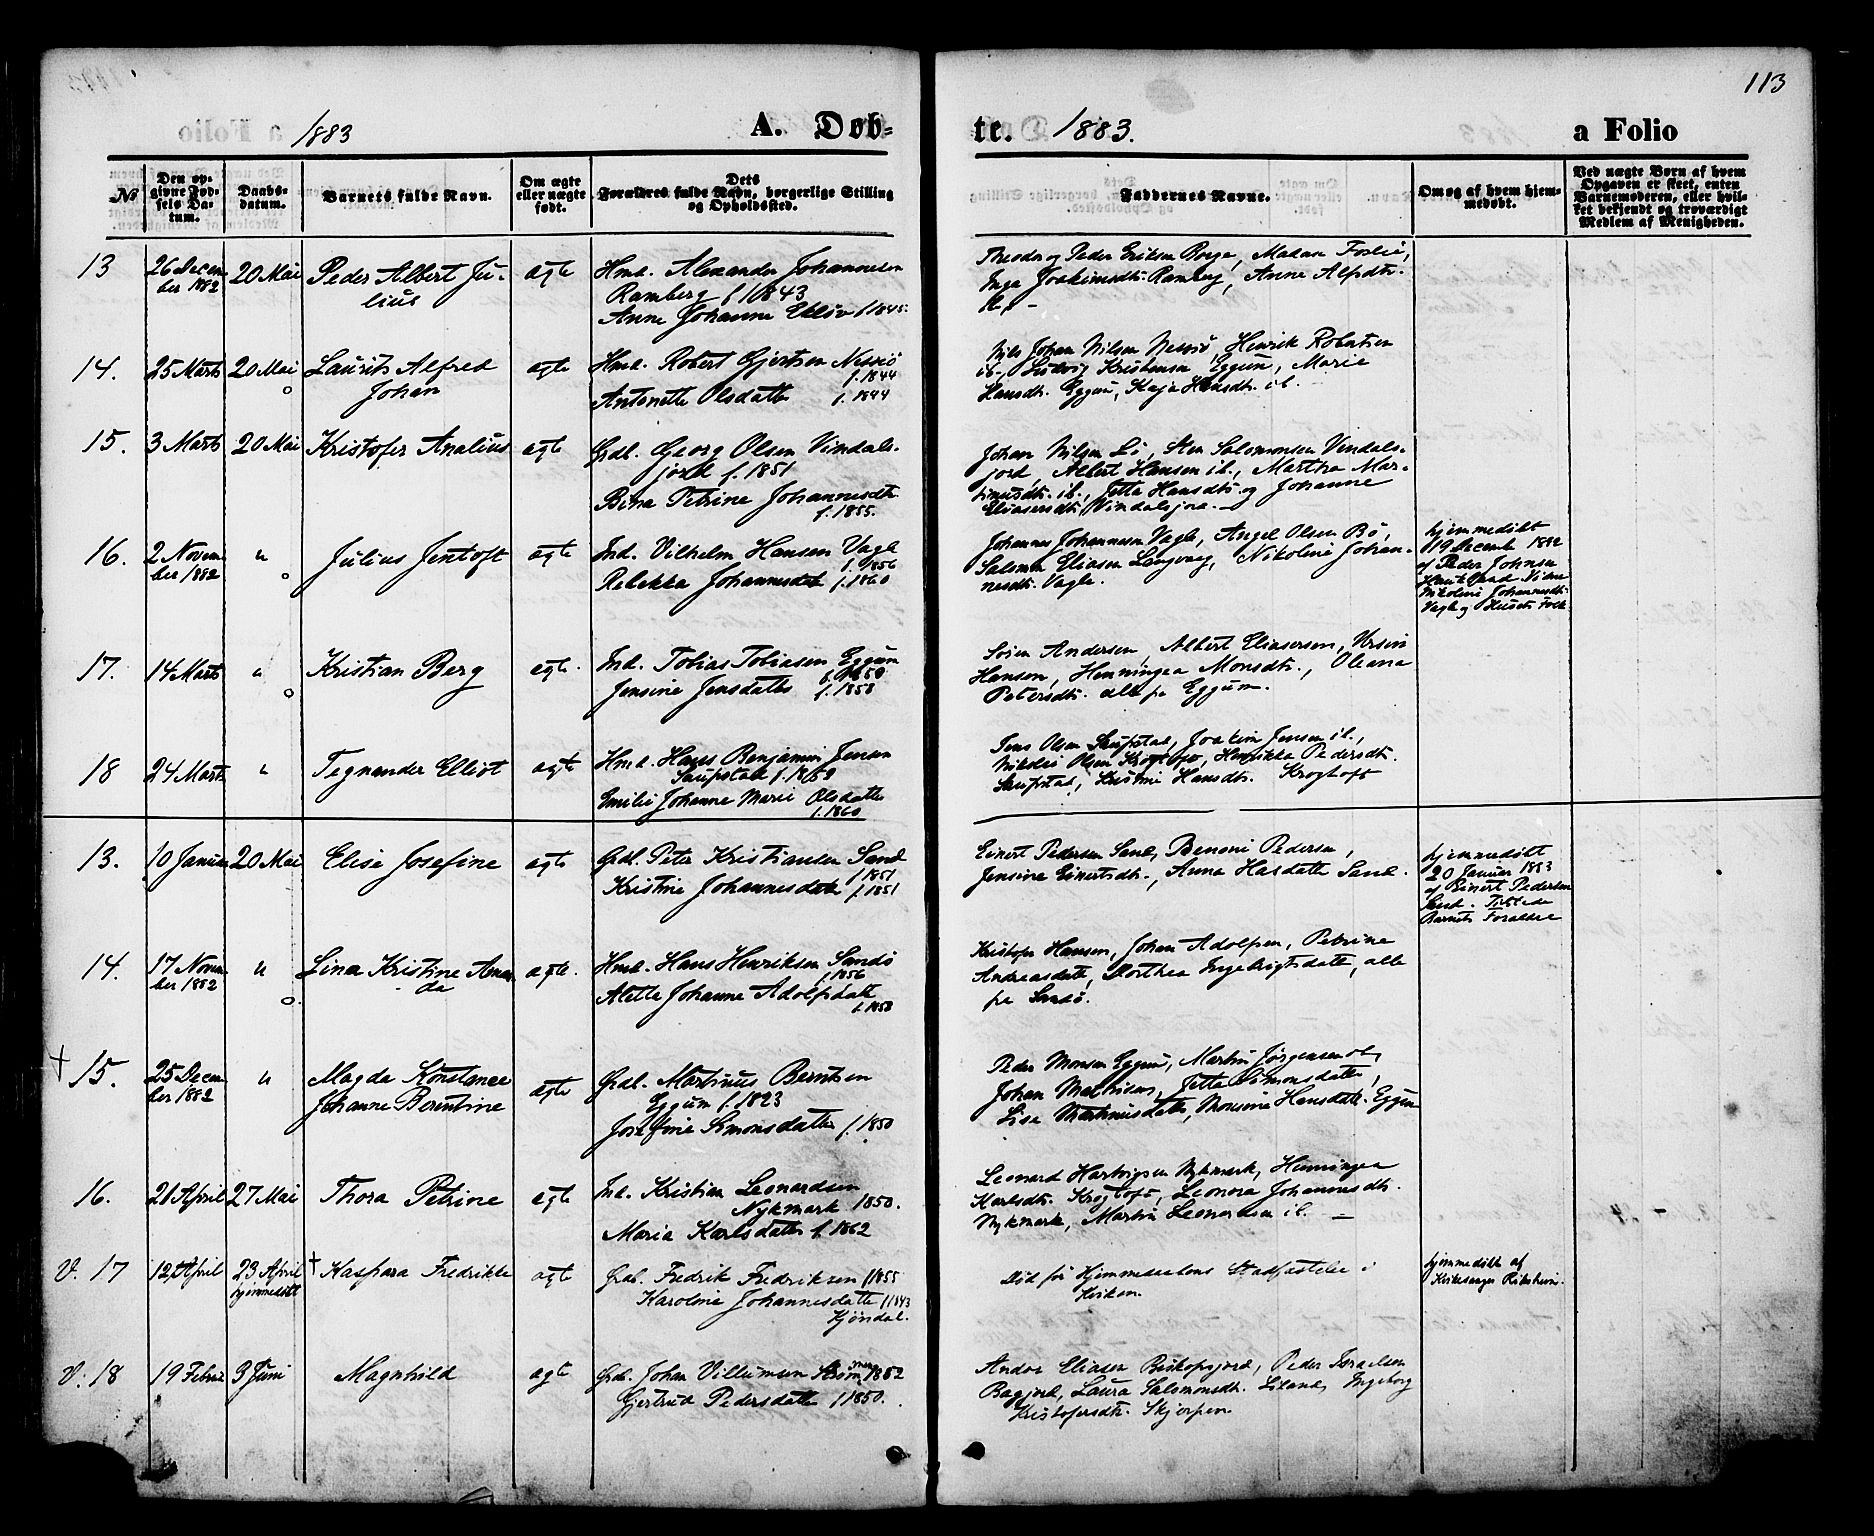 113
1883
A. Døb-
te. 1883.
a Folio
№
Den op-
givne Fød-
sels Da-
tum.
Daabs-
datum.
Barnets fulde Navn.
Om ægte
eller uægte
født.
Dets
Forældres fulde Navn, borgerlige Stilling
og Opholdssted.
Faddernes Navne.
Om og af hvem hjem-
medøbt.
Ved uægte Børn af hvem
Opgaven er skeet, enten
Barnemoderen, eller hvil-
ket bekjendt og troværdigt
Medlem af Menigheden.
13
26 Decem
ber 1882
20 Mai
Peder Albert Ju-
lius
ægte
Hmd. Alexander Johannesen
Ramberg f. 1843
Anne Johanne 1845.
Theodor og Peder Eriksen Borge, Madam
Inga Joakimsdtr. Ramberg, Anne Alfsdtr.
14.
25 Marts
20 Mai
Laurits Alfred
Johan
ægte
Hmd. Robert Gjertsen Nessiø
f. 1844
Antonette Olsdatter f. 1844
Nils Johan Nilsen Nessiø, Henrik Robertsen
ib., Ludvig Kristensen Eggum, Marie
Hansdt. Eggum, Kaja Hansdt. ib.
15.
3 Marts
20 Mai
Kristofer Analius
ægte
Grdl. Georg Olsen Vindals-
jord f. 1851
Bina Petrine Johannesdtr
f. 1855.
Johan Nilsen Lø, Sten Salomonsen Vindals-
jord, Albert Hansen ib., Martha Mar-
tinusdt. ib., Jetta Hansdtr. og Johanne
Eliasersdt, Vindalsjord.
16.
2 Novem
ber 1882
"
Julius Jentoft
ægte
Ind. Vilhelm Hansen Vagle
f. 1856
Rebekka Johannesdatt f. 1860
Johannes Johannesen Vagle, Angel Olsen Bø,
Salomon Eliasen Langvag, Nikoline Johan-
nesdt. Vagle.
hjemmedøbt
19 Decemb 1882
af Peder Johnsen
Nikoline Johannesdt.
Vagle og Husets Folk
17.
14 Marts
"
Kristian Berg
ægte.
Ind. Tobias Tobiasen Eggum
f. 1850
Jensine Jensdatter f. 1858
Søren Andersen, Albert Eliasersen, Ursin
Hansen, Henningea Monsdt., Oleana
Petersdt. alle pa Eggum.
18
24 Marts
"
Tegnander Elliot
ægte
Hmd. Hans Benjamin Jensen
Saupstad f. 1859
Emilie Johanne Marie Olsdatter
f. 1860
Jens Olsen Saupstad, Joakim Jensen ib.,
Nikolai Olsen Krogtoft, Henrikka Pedersdt.
Saupstad, Kristine Hansdt. Krogtoft
13.
10 Januar
20 Mai
Elise Josefine
ægte
Grdl. Peter Kristiansen Sand
f. 1851
Kristine Johannesdatt f. 1851
Einert Pedersen Sand, Benoni Pedersen,
Jensine Einertsdt., Anna Hasdatte Sand.
hjemmedøbt
20 Januar 1883
af Einert Pedersen
Sand. Tilstede
Barnets Forældre
14.
17 Novem
ber 1882
"
Lina Kristine Aman
da
ægte.
Hmd. Hans Henriksen Sandø
f. 1856
Alette Johanne Adolfsdatte
f. 1858
Kristofer Hansen, Johan Adolfsen, Petrine
Andreasdatt, Dorthea Ingebrigtsdatt, alle
pa Sandø.
† 15.
25 Decem
ber 1882
"
Magda Konstance
Johanne Berntine
ægte
Grdl. Martinus Berntsen
Eggum f. 1823
Josefine Simonsdatter f. 1850
Peder Monsen Eggum, Martin Jørgensen ib,
Johan Mathisen, Jetta Simonsdatter,
Lisa Martinusdatter, Monsine Hansdatt. Eggum
16.
21 April
27 Mai
Thora Petrine
ægte
Ind. Kristian Leonardsen
Nykmark 1850.
Maria Karlsdatter f. 1862
Leonard Hartvigsen Nykmark, Henningea
Karlsdt. Krogtoft, Leonora Johannesdt.
Nykmark, Martin Leonardsen ib.
V. 17
12 April
23 April
hjemmedøbt
† Kaspara Fredrikke
ægte
Grdl. Fredrik Fredriksen f 1855
Karoline Johannesdatte f 1843
Kjøndal.
Død før Hjemmedaabens Stadfæstelse i
Kirken.
hjemmedøbt af
Kirkesanger
V. 18
19 Februar
3 Juni
Magnhild
ægte
Grdl. Johan Villumsen 1852
Gjertrud Pedersdatter f 1850.
Andor Eliasen Biskopsjord, Peder Israelsen
Bagjord, Laura Salomonsdt. Liland, Ingeborg
Kristofersdtr. Skjerpen